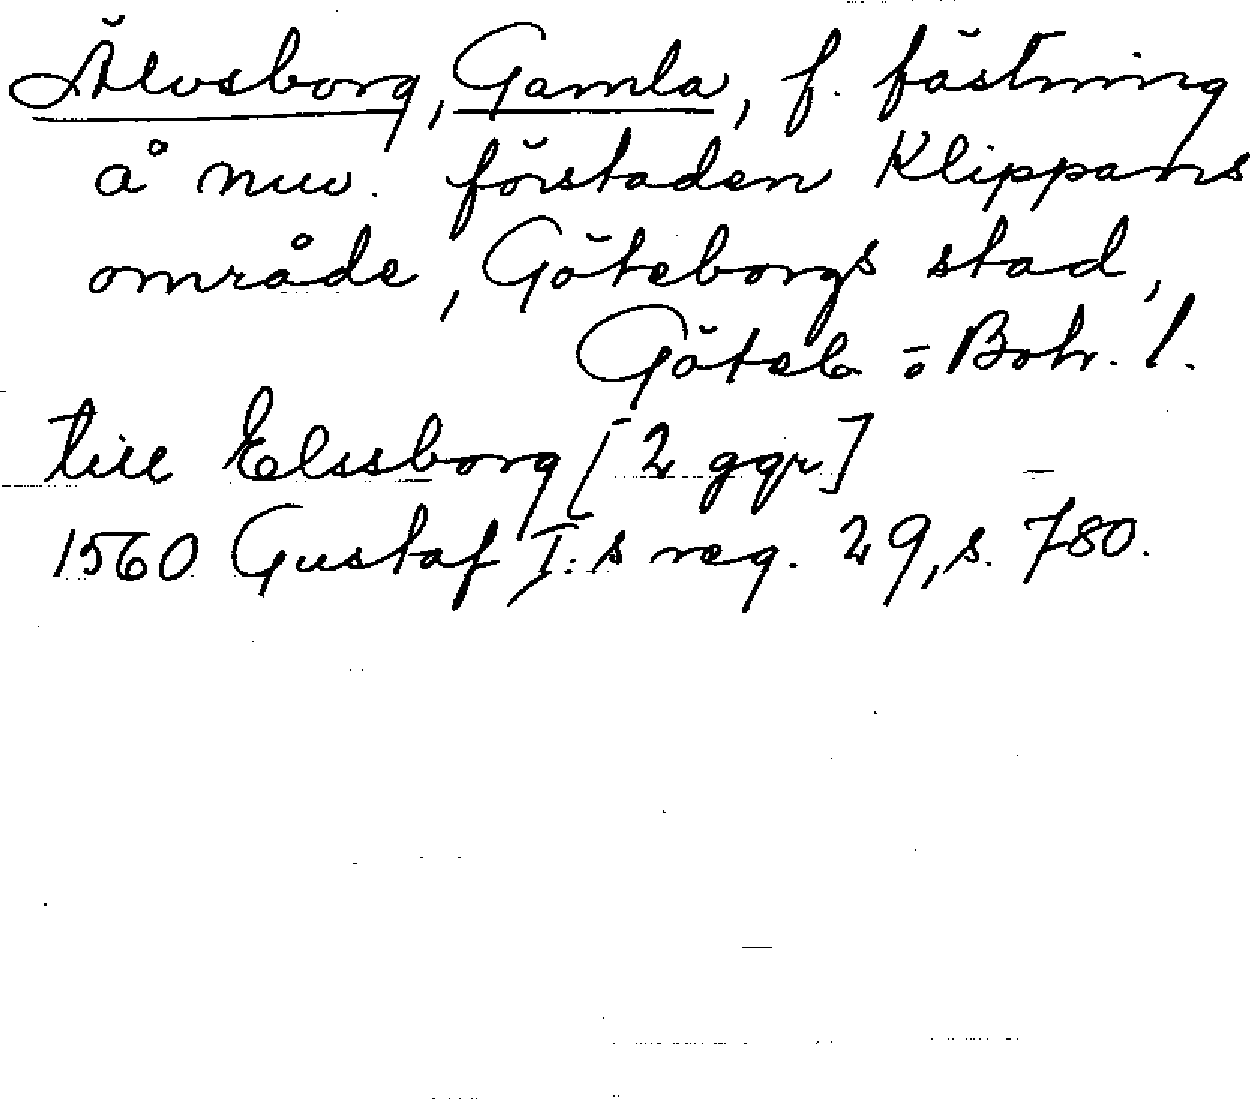 Älvsborg, Gamla, f. fästning
å nuv. förstaden Klippans
område, Göteborgs stad,
Göteb o Boh. l.
till Elssborg [2 ggr]
1560 Gustaf I:s reg. 29, s. 780.